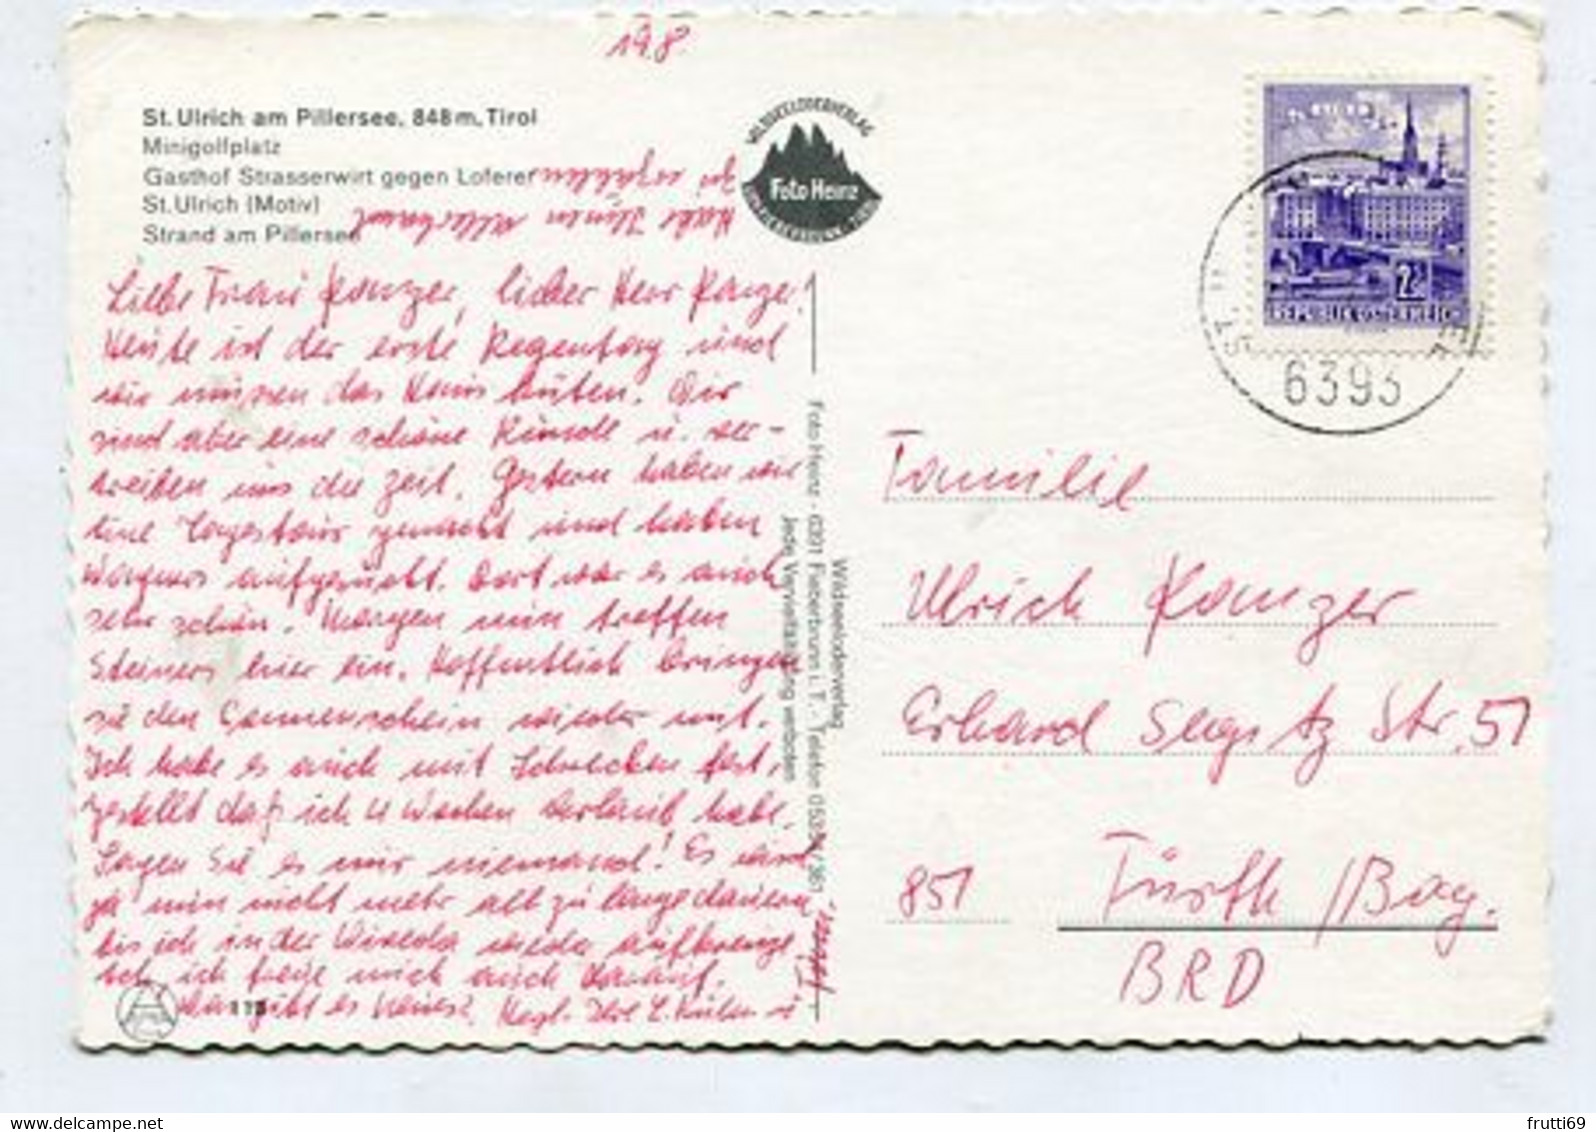 19.8.
St. Ulrich am Pillersee, 848 m, Tirol
Minigolfplatz
Gasthof Strasserwirt gegen Loferer
St. Ulrich (Motiv)
Strand am Pillersee
WILDSEELODERVERLAG
Foto Heinz
REPUBLIK ÖSTERREICH
2
6393
Liebe Frau Panzer, lieber Herr Panzer!
Heute ist der erste Regentag und
wir müssen das Haus hüten. Wir
sind aber eine schöne Runde u. ver-
treiben uns die Zeit. Gestern haben wir
eine Tagestour gemacht und haben
Wagners aufgesucht. Dort war es auch
sehr schön. Morgen nun treffen
Steiners hier ein. Hoffentlich bringen
sie den Sonnenschein wieder mit.
Ich habe es auch mit Schrecken fest,
gestellt daß ich 4 Wochen Urlaub habe.
Sagen Sie es mir niemand! Es wird
ja nun nicht mehr allzu lange dauern
bis ich in der wieder auftauche
ich freue mich auch darauf.
gibt es Neues? Ihre
zu erzählen
Habe Ihnen allerhand
Wildseeloderverlag
Foto Heinz · 6391 Fieberbrunn i. T., Telefon 05354/361
Jede Vervielfältigung verboten
113
Familie
Ulrich Panzer
Erhard Segitz Str. 51
851 Fürth /Bay.
BRD
frutti69